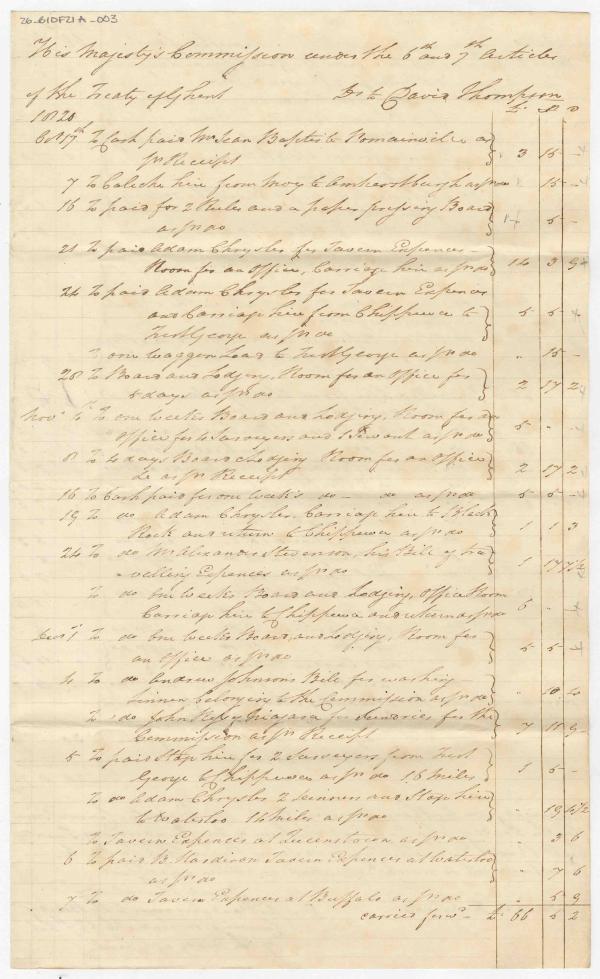 26-61DF21A-003
His Majesty's Commission under the 6th and 7th Articles
of the Treaty of Ghent Dr to David Thompson
1820 £ S D
Octr 17th To Cash paid Mr Jean Baptiste Romainville as
pr Receipt 3 15 -
7 To Caleche hire from Moy to Amherstburgh as pr do 15 -
16 To paid for 2 Rules and a paper pressing Board
as pr do 5 -
21 To paid Adam Chrysler for Tavern Expences -
Room for an Office, Carriage hire as pr do 14 3 9
24 To paid Adam Chrysler for Tavern Expences
and Carriage hire from Chippewa to
Fort George as pr do 5 5 -
To one Waggon Load to Fort George as pr do " 15 -
28 To Board and Lodging, Room for an Office for
5 days as pr do 2 17 2
Novr To one weeks Board and Lodging, Room for an
Office for 4 Surveyors and 1 Servant as pr do 5 - -
8 To 4 days Board & Lodging Room for an Office
do as pr Receipt 2 17 2
16 To Cash paid for one week's do - do as pr do 5 5 -
19 To do Adam Chrysler, Carriage hire to Black
Rock and return to Chippewa as pr do 1 1 3
24 To do Mr Alexander Stevenson, his Bill of tra
-velling Expences as pr do 1 17 7½
To do One Weeks Board and Lodging, Office Room
Carriage hire to Chippewa and return as pr do 6 -
Decr 1 To do One Weeks Board, and Lodging, Room for
an Office as pr do 5 5 -
4 To do Andrew Johnsons Bill for washing
Linnen belonging to the Commission as pr do " 10 4
To do John Ross of Niagara for Sundries for the
Commission as pr Receipt 7 11 9
5 To paid Stage hire for 2 Surveyors from Fort
George to Chippewa as pr do 16 miles 1 5 -
To do Adam Chrysler 2 Dinners and Stage hire
to Waterloo 14 miles as pr do " 19 4½
To Tavern Expences at Queenstown as pr do " 3 6
6 To paid B. Hardison Tavern Expences at Waterloo
as pr do " 7 6
7 To do Tavern Expences at Buffalo as pr do " 5 9
carried forwd - £ 66 5 2